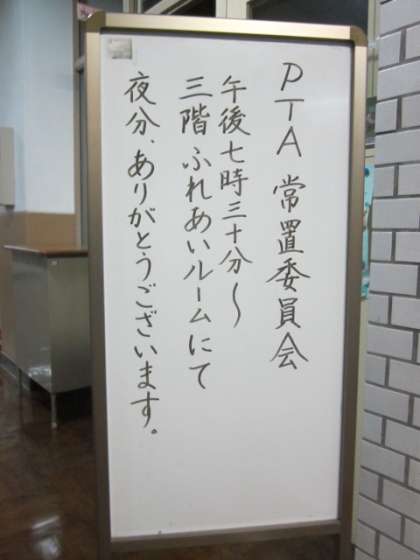 PTA 常置委員会
午後七時三十分～
三階 ふれあいルームにて
夜分、ありがとうございます。